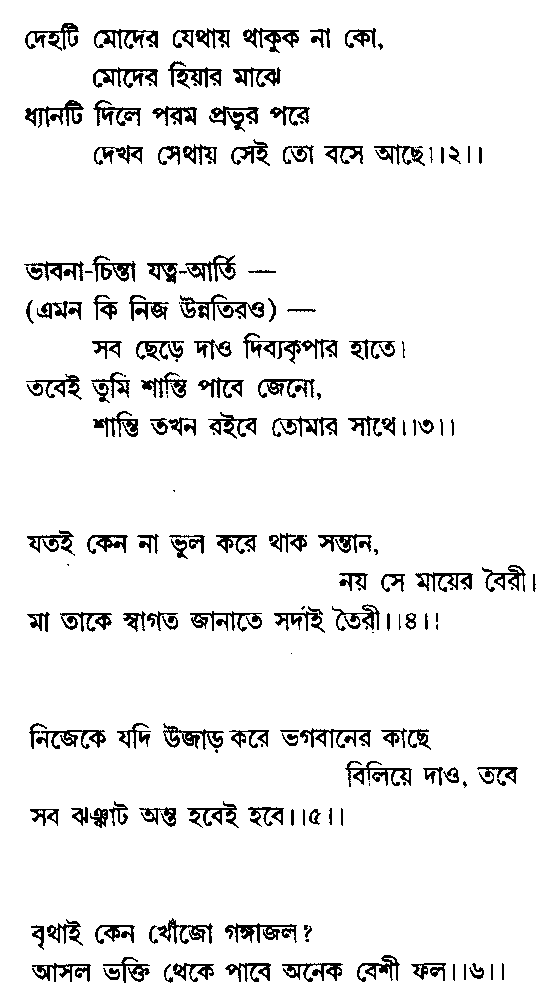 দেহটি মোদের যেথায় থাকুক না কো,
মোদের হিয়ার মাঝে
ধ্যানটি দিলে পরম প্রভুর পরে
দেখব সেথায় সেই তো বসে আছে।।২।।
ভাবনা-চিন্তা যত্ন-আর্তি —
(এমন কি নিজ উন্নতিরও) —
সব ছেড়ে দাও দিব্যকৃপার হাতে।
তবেই তুমি শান্তি পাবে জেনো,
শান্তি তখন রইবে তোমার সাথে।।৩।।
যতই কেন না ভুল করে থাক সন্তান,
নয় সে মায়ের বৈরী।
মা তাকে স্বাগত জানাতে সর্দাই তৈরী।।৪।।
নিজেকে যদি উজাড় করে ভগবানের কাছে
বিলিয়ে দাও, তবে
সব ঝঞ্ঝাট অন্ত হবেই হবে।।৫।।
বৃথাই কেন খোঁজো গঙ্গাজল?
আসল ভক্তি থেকে পাবে অনেক বেশী ফল।।৬।।